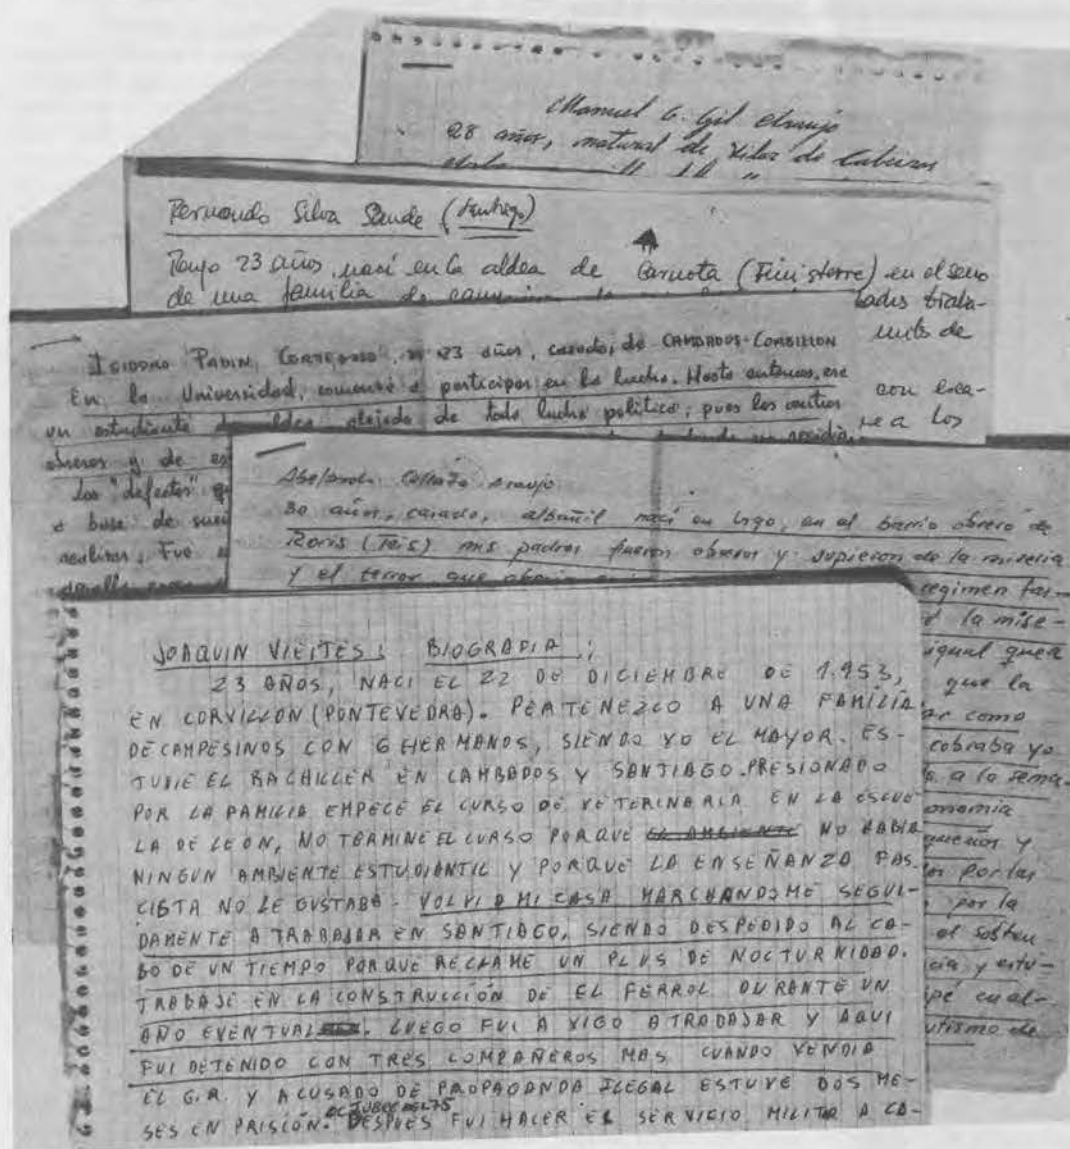 Manuel G. Gil Araujo
28 años, natural de Vilar de Cabeiras
Fernando Silva Sande (Santiago)
Tengo 23 años, nací en la aldea de Carnota (Finisterre) en el seno
de una familia de
tades traba-
con esca-
a los
ISIDORO PADIN, 23 años, casado, de CAMBADOS-CORBILLON
En la Universidad, comencé a participar en la lucha. Hasta entonces, era
un estudiante de aldea alejado de toda lucha política, pues los
obreros y de es
Los "defectos" q
a base de
realizar, Fué
Abelardo Collazo Araujo
30 años, casado, albañil nací en Vigo, en el barrio obrero de
Roris (Teis) mis padres fueron obreros y supieron de la miseria
y el terror que
regimen fas-
la mise-
igual que a
que la
ar como
cobraba yo
a la sema-
onomia
queños y
por las
por la
el sosten
cia y estu-
pé cual-
utismo de
JOAQUIN VIEITES: BIOGRAFIA:;
23 AÑOS, NACI EL 22 DE DICIEMBRE DE 1.953,
EN CORVILLON (PONTEVEDRA). PERTENEZCO A UNA FAMILIA
DE CAMPESINOS CON 6 HERMANOS, SIENDO YO EL MAYOR. ES-
TUDIE EL BACHILLER EN CAMBADOS Y SANTIAGO. PRESIONADO
POR LA FAMILIA EMPECE EL CURSO DE VETERINARIA EN LA ESCUE
LA DE LEON, NO TERMINE EL CURSO PORQUE EL AMBIENTE NO HABIA
NINGUN AMBIENTE ESTUDIANTIL Y PORQUE LA ENSEÑANZA FAS-
CISTA NO LE GUSTABA. VOLVI A MI CASA MARCHANDOME SEGUI-
DAMENTE A TRABAJAR EN SANTIAGO, SIENDO DESPEDIDO AL CA-
BO DE UN TIEMPO PORQUE RECLAME UN PLUS DE NOCTURNIDAD.
TRABAJE EN LA CONSTRUCCIÓN DE EL FERROL DURANTE UN
AÑO EVENTUAL. LUEGO FUI A VIGO A TRABAJAR Y AQUI
FUI DETENIDO CON TRES COMPAÑEROS MAS CUANDO VENDIA
EL G.R. Y ACUSADO DE PROPAGANDA ILEGAL ESTUVE DOS ME-
OCTUBRE DEL 75
SES EN PRISIÓN. DESPUES FUI HACER EL SERVICIO MILITAR A CA-